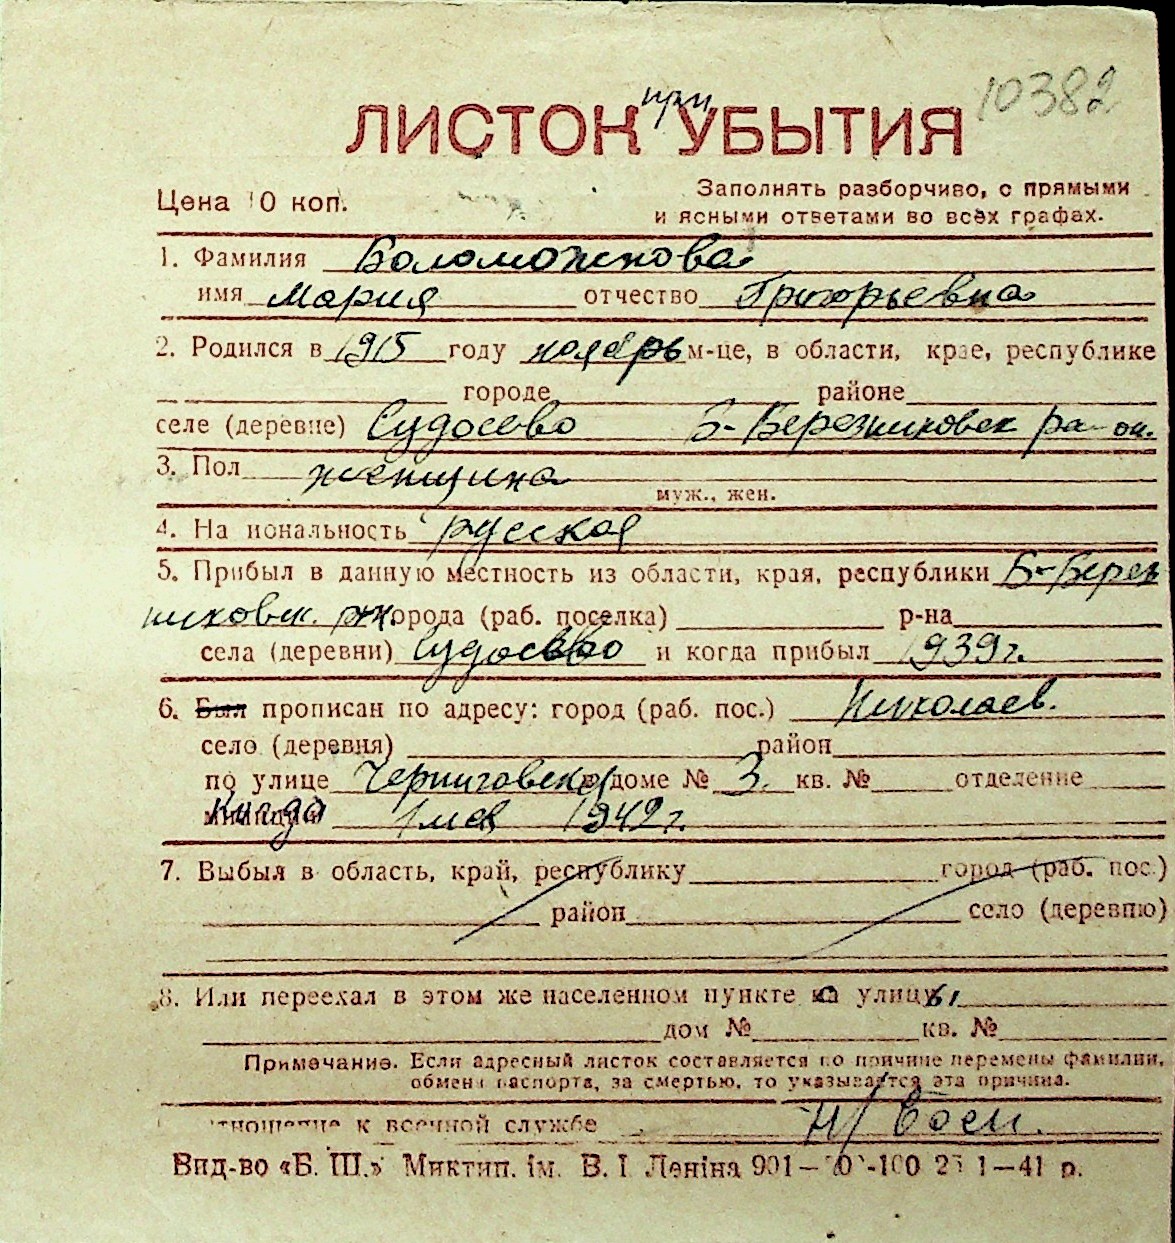 10382
при
ЛИСТОК УБЫТИЯ
Цена 10 коп.
Заполнять разборчиво, с прямыми
и ясными ответами во всех графах.
1. Фамилия Боломожнова
имя Мария отчество Григорьевна
2. Родился в 1915 году ноябрь м-це, в области, крае, республике
городе районе
селе (деревне) Судосево Б-Березниковск район.
3. Пол женщина
муж., жен.
4. На иональность русская
5. Прибыл в данную местность из области, края, республики Б-Берез
никовск. рн. города (раб. поселка) р-на
села (деревни) Судосево и когда прибыл 1939 г.
6. Был прописан по адресу: город (раб. пос.) Николаев.
село (деревня) район
по улице Черниговская доме № 3. кв. № отделение
милиции Когда 1942 г.
7. Выбыл в область, край, республику город (раб. пос.)
район село (деревню)
8. Или переехал в этом же населенном пункте на улицу
дом № кв. №
Примечание. Если адресный листок составляется по причине перемены фамилии,
обмена паспорта, за смертью, то указывается эта причина.
тношение к военной службе н/воен.
Вид-во «Б. Ш.» Миктип. ім. В. І Леніна 901— -100 1—41 р.